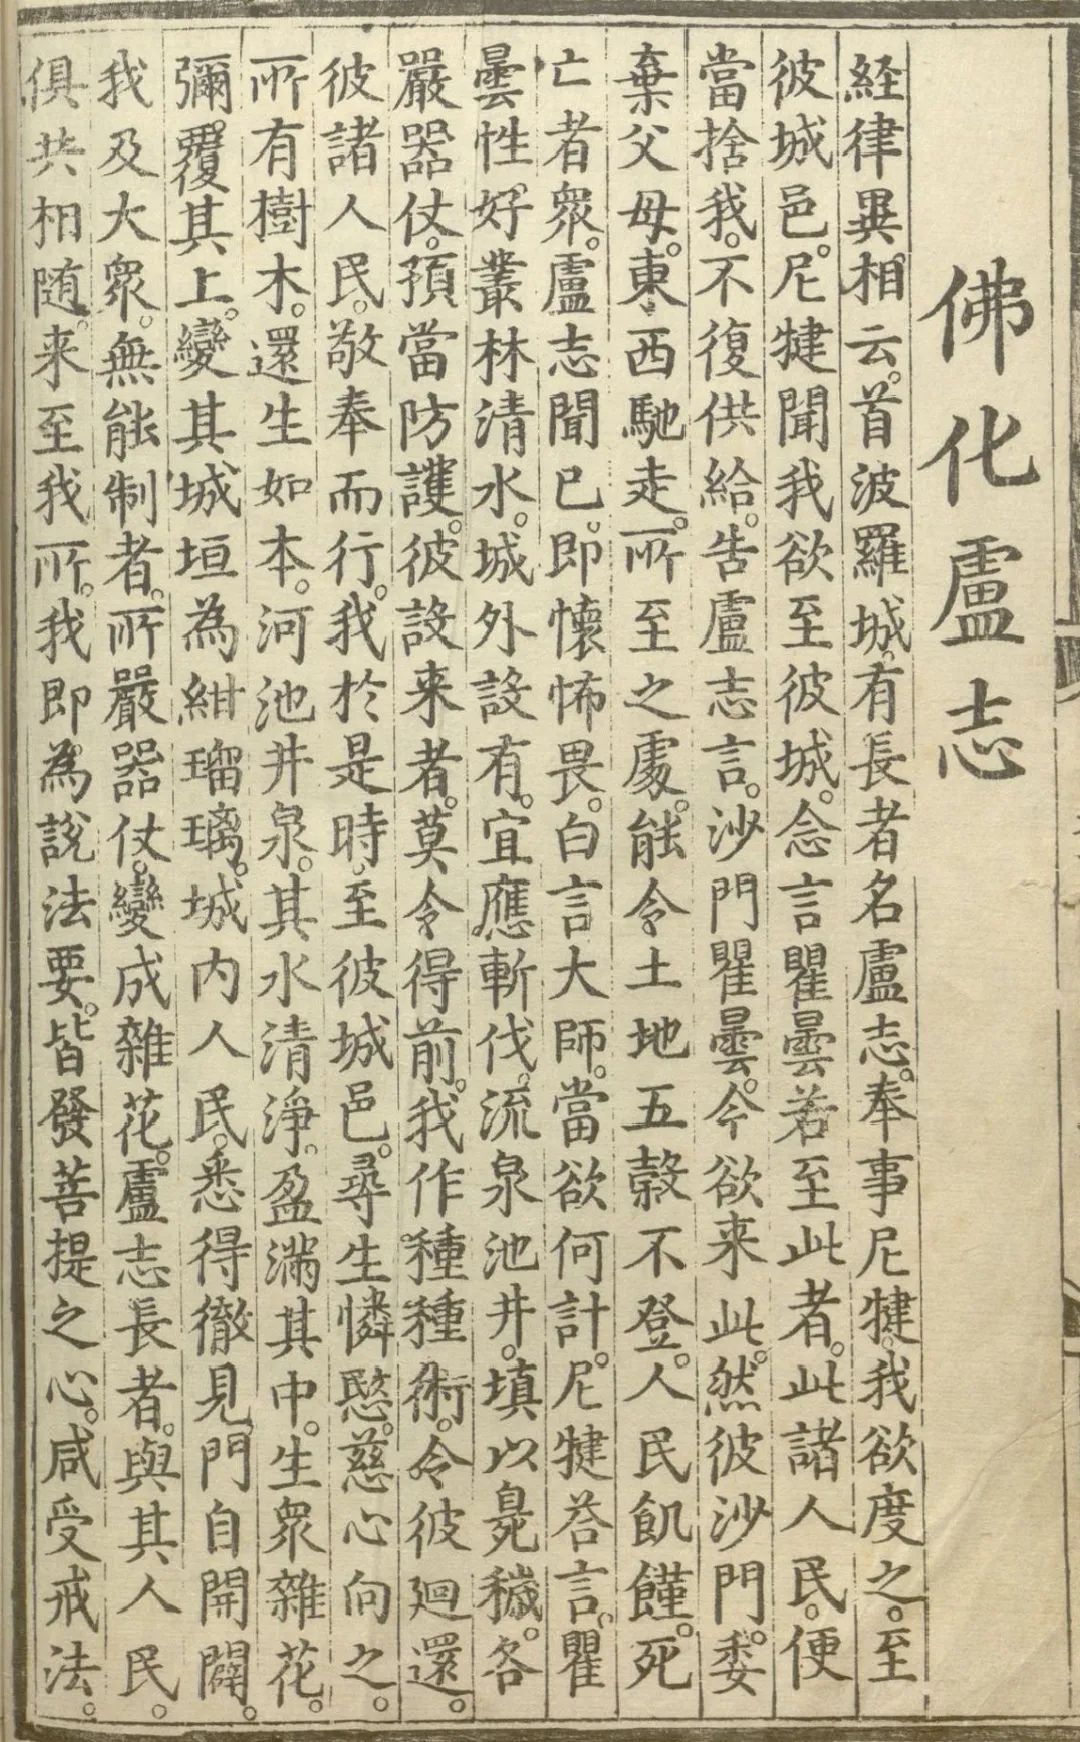 佛化盧志
経律異相云。首波羅城。有長者名盧志。奉事尼犍。我欲度之。至
彼城邑。尼犍聞我欲至彼城。念言瞿曇若至此者。此諸人民。便
當捨我。不復供給。告盧志言。沙門瞿曇。今欲来此。然彼沙門。委
棄父母。東西馳走。所至之處。能令土地五穀不登。人民飢饉。死
亡者眾。盧志聞已。即懷怖畏。白言大師。當欲何計。尼犍荅言。瞿
曇性好叢林清水。城外設有。宜應斬伐。流泉池井。填以臰穢。各
嚴器仗。預當防護。彼設来者。莫令得前。我作種種術。令彼廻還。
彼諸人民。敬奉而行。我於是時。至彼城邑。尋生憐愍。慈心向之。
所有樹木。還生如本。河池井泉。其水清淨。盈滿其中。生眾雜花。
彌覆其上。變其城垣為紺瑠璃。城内人民。悉得徹見。門自開闢。
我及大眾。無能制者。所嚴器仗。變成雜花。盧志長者。與其人民。
俱共相随。来至我所。我即為說法要。皆發菩提之心。咸受戒法。